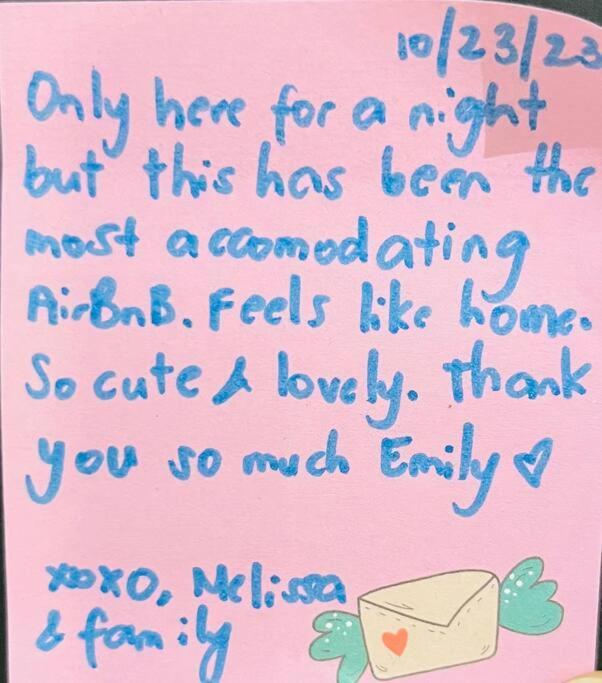 10/23/23
Only here for a night
but this has been the
most accomodating
AirBnB. Feels like home.
So cute & lovely. Thank
you so much Emily ♡
xoxo, Melissa
& family